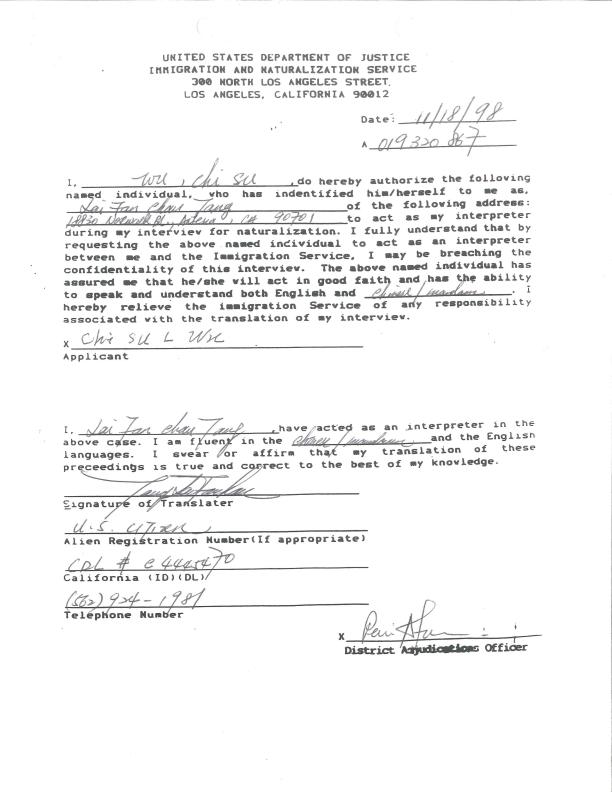 UNITED STATES DEPARTMENT OF JUSTICE
IMMIGRATION AND NATURALIZATION SERVICE
300 NORTH LOS ANGELES STREET.
LOS ANGELES, CALIFORNIA 90012
Date: 11/18/98
A 019 320 867
I, WU, Chi SU ,do hereby authorize the following
named individual, who has indentified him/herself to me as,
Lai Fan Chau Tang of the following address:
18830 Blvd., Artesia, CA 90701 to act as my interpreter
during my interview for naturalization. I fully understand that by
requesting the above named individual to act as an interpreter
between me and the Immigration Service, I may be breaching the
confidentiality of this interview. The above named individual has
assured me that he/she will act in good faith and has the ability
to speak and understand both English and Chinese/mandarin . I
hereby relieve the immigration Service of any responsibility
associated with the translation of my interview.
X Chi SU L WU
Applicant
I, Lai Fan Chau Tang ,have acted as an interpreter in the
above case. I am fluent in the Chinese/mandarin and the English
languages. I swear or affirm that my translation of these
preceedings is true and correct to the best of my knowledge.
Signature of Translater
U.S. CITIZEN
Alien Registration Number(If appropriate)
CDL # C4445470
California (ID)(DL)
(562) 924-1981
Telephone Number
X
District Adjudications Officer